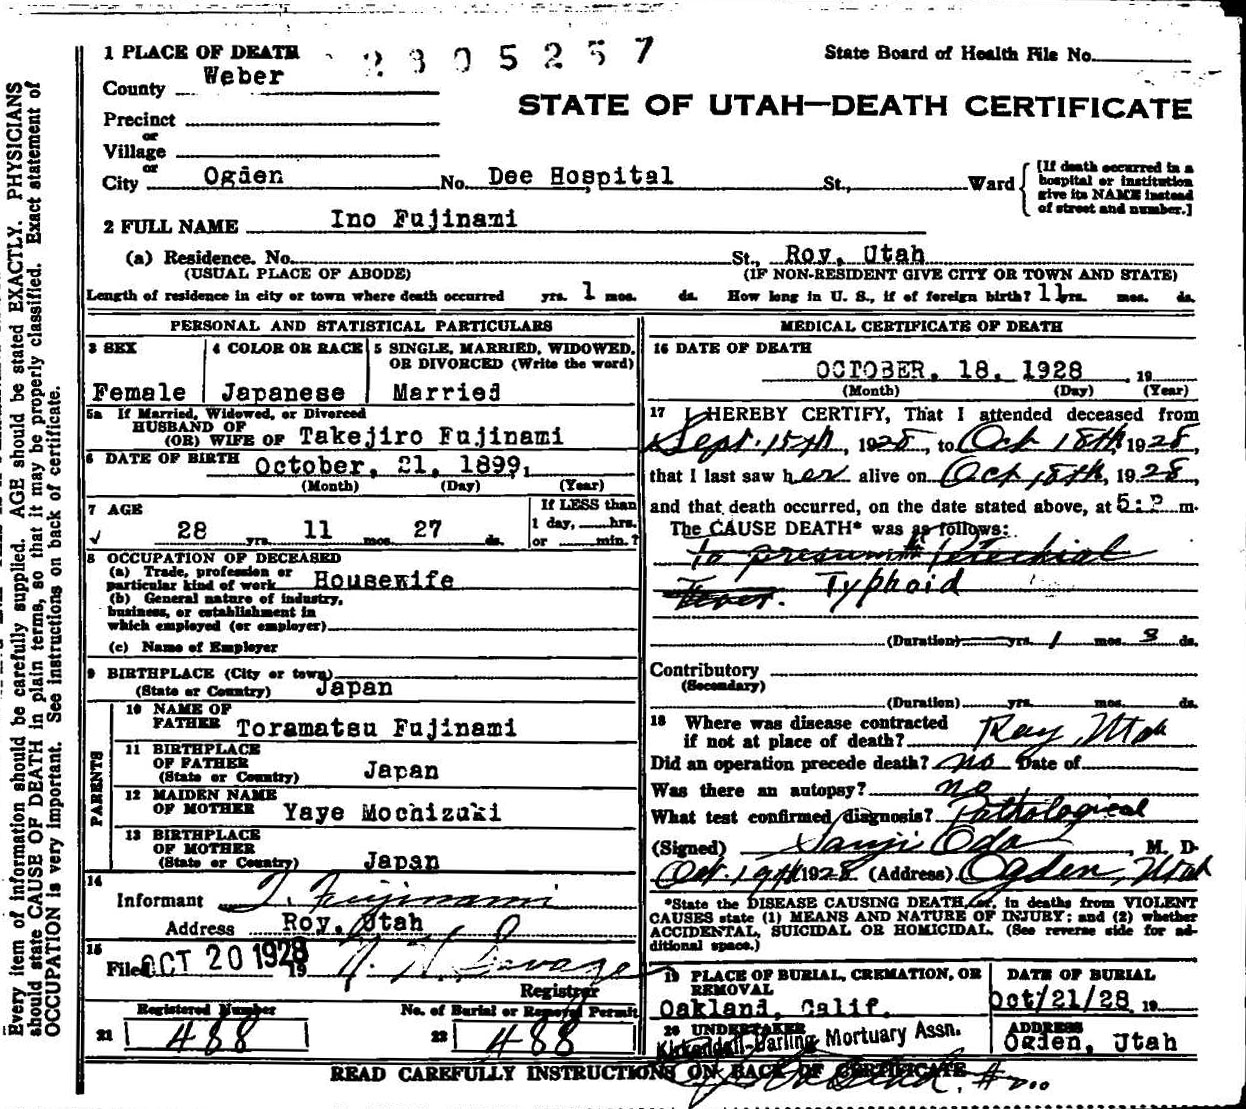 1 PLACE OF DEATH
2805257
State Board of Health File No.
County Weber
STATE OF UTAH—DEATH CERTIFICATE
Precinct
or
Village
or
City Ogden No. Dee Hospital St., Ward
[If death occurred in a hospital or institution give its NAME instead of street and number.]
2 FULL NAME Ino Fujinami
(a) Residence. No. St., Roy, Utah
(USUAL PLACE OF ABODE) (IF NON-RESIDENT GIVE CITY OR TOWN AND STATE)
Length of residence in city or town where death occurred yrs. 1 mos. ds. How long in U. S., if of foreign birth? 11 yrs. mos. ds.
PERSONAL AND STATISTICAL PARTICULARS
3 SEX
Female
4 COLOR OR RACE
Japanese
5 SINGLE, MARRIED, WIDOWED, OR DIVORCED (Write the word)
Married
5a If Married, Widowed, or Divorced
HUSBAND OF
(OR) WIFE OF Takejiro Fujinami
6 DATE OF BIRTH October, 21, 1899,
(Month) (Day) (Year)
7 AGE
28 yrs. 11 mos. 27 ds.
If LESS than
1 day, hrs.
or min.?
8 OCCUPATION OF DECEASED
(a) Trade, profession or
particular kind of work Housewife
(b) General nature of industry,
business, or establishment in
which employed (or employer)
(c) Name of Employer
9 BIRTHPLACE (City or town)
(State or Country) Japan
PARENTS
10 NAME OF
FATHER Toramatsu Fujinami
11 BIRTHPLACE
OF FATHER
(State or Country) Japan
12 MAIDEN NAME
OF MOTHER Yaye Mochizuki
13 BIRTHPLACE
OF MOTHER
(State or Country) Japan
14
Informant T. Fujinami
Address Roy, Utah
15
Filed OCT 20 1928 19
Registrar
Registered Number
21 488
No. of Burial or Removal Permit
22 488
MEDICAL CERTIFICATE OF DEATH
16 DATE OF DEATH
OCTOBER, 18, 1928 19
(Month) (Day) (Year)
17 I HEREBY CERTIFY, That I attended deceased from
Sept. 15th, 1928, to Oct 18th, 1928,
that I last saw her alive on Oct 18th, 1928,
and that death occurred, on the date stated above, at 5:2 m.
The CAUSE DEATH* was as follows:
Fever. Typhoid
(Duration) yrs. 1 mos. 3 ds.
Contributory
(Secondary)
(Duration) yrs. mos. ds.
18 Where was disease contracted
if not at place of death? Roy, Utah
Did an operation precede death? no Date of
Was there an autopsy? no
What test confirmed diagnosis? Pathological
(Signed) Sanji Oda, M. D.
Oct. 19th 1928 (Address) Ogden, Utah
*State the DISEASE CAUSING DEATH, or, in deaths from VIOLENT
CAUSES state (1) MEANS AND NATURE OF INJURY; and (2) whether
ACCIDENTAL, SUICIDAL OR HOMICIDAL. (See reverse side for additional space.)
19 PLACE OF BURIAL, CREMATION, OR
REMOVAL
Oakland, Calif.
DATE OF BURIAL
Oct/21/28 19
20 UNDERTAKER
Kirkendall-Darling Mortuary Assn.
ADDRESS
Ogden, Utah
READ CAREFULLY INSTRUCTIONS ON BACK OF CERTIFICATE
Every item of information should be carefully supplied. AGE should be stated EXACTLY. PHYSICIANS
should state CAUSE OF DEATH in plain terms, so that it may be properly classified. Exact statement of
OCCUPATION is very important. See instructions on back of certificate.